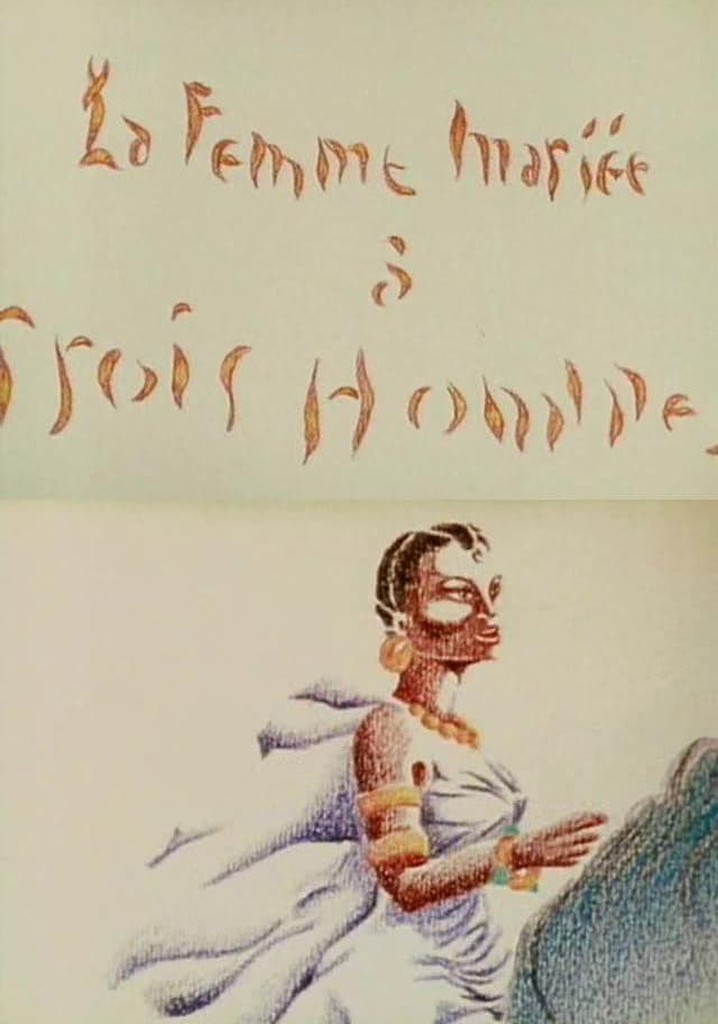 La Femme Mariée
à
Trois Hommes